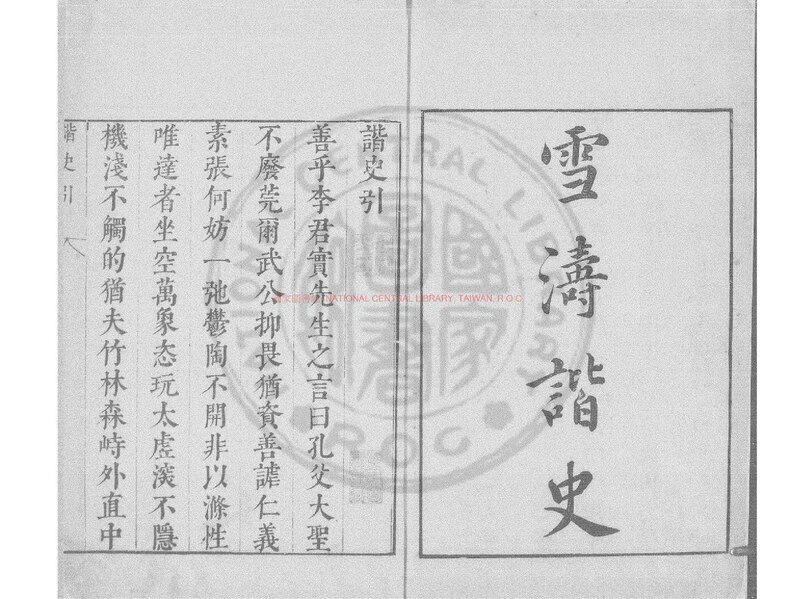 雪濤諧史
諧史引
善乎李君實先生之言曰孔父大聖
不廢莞爾武公抑畏猶資善謔仁義
素張何妨一弛鬱陶不開非以滌性
唯達者坐空萬象恣玩太虛淡不隱
機淺不觸的猶夫竹林森峙外直中
諧史引
NATIONAL CENTRAL LIBRARY, TAIWAN, R.O.C
NATIONAL CENTRAL LIBRARY
R.O.C
國家圖書館